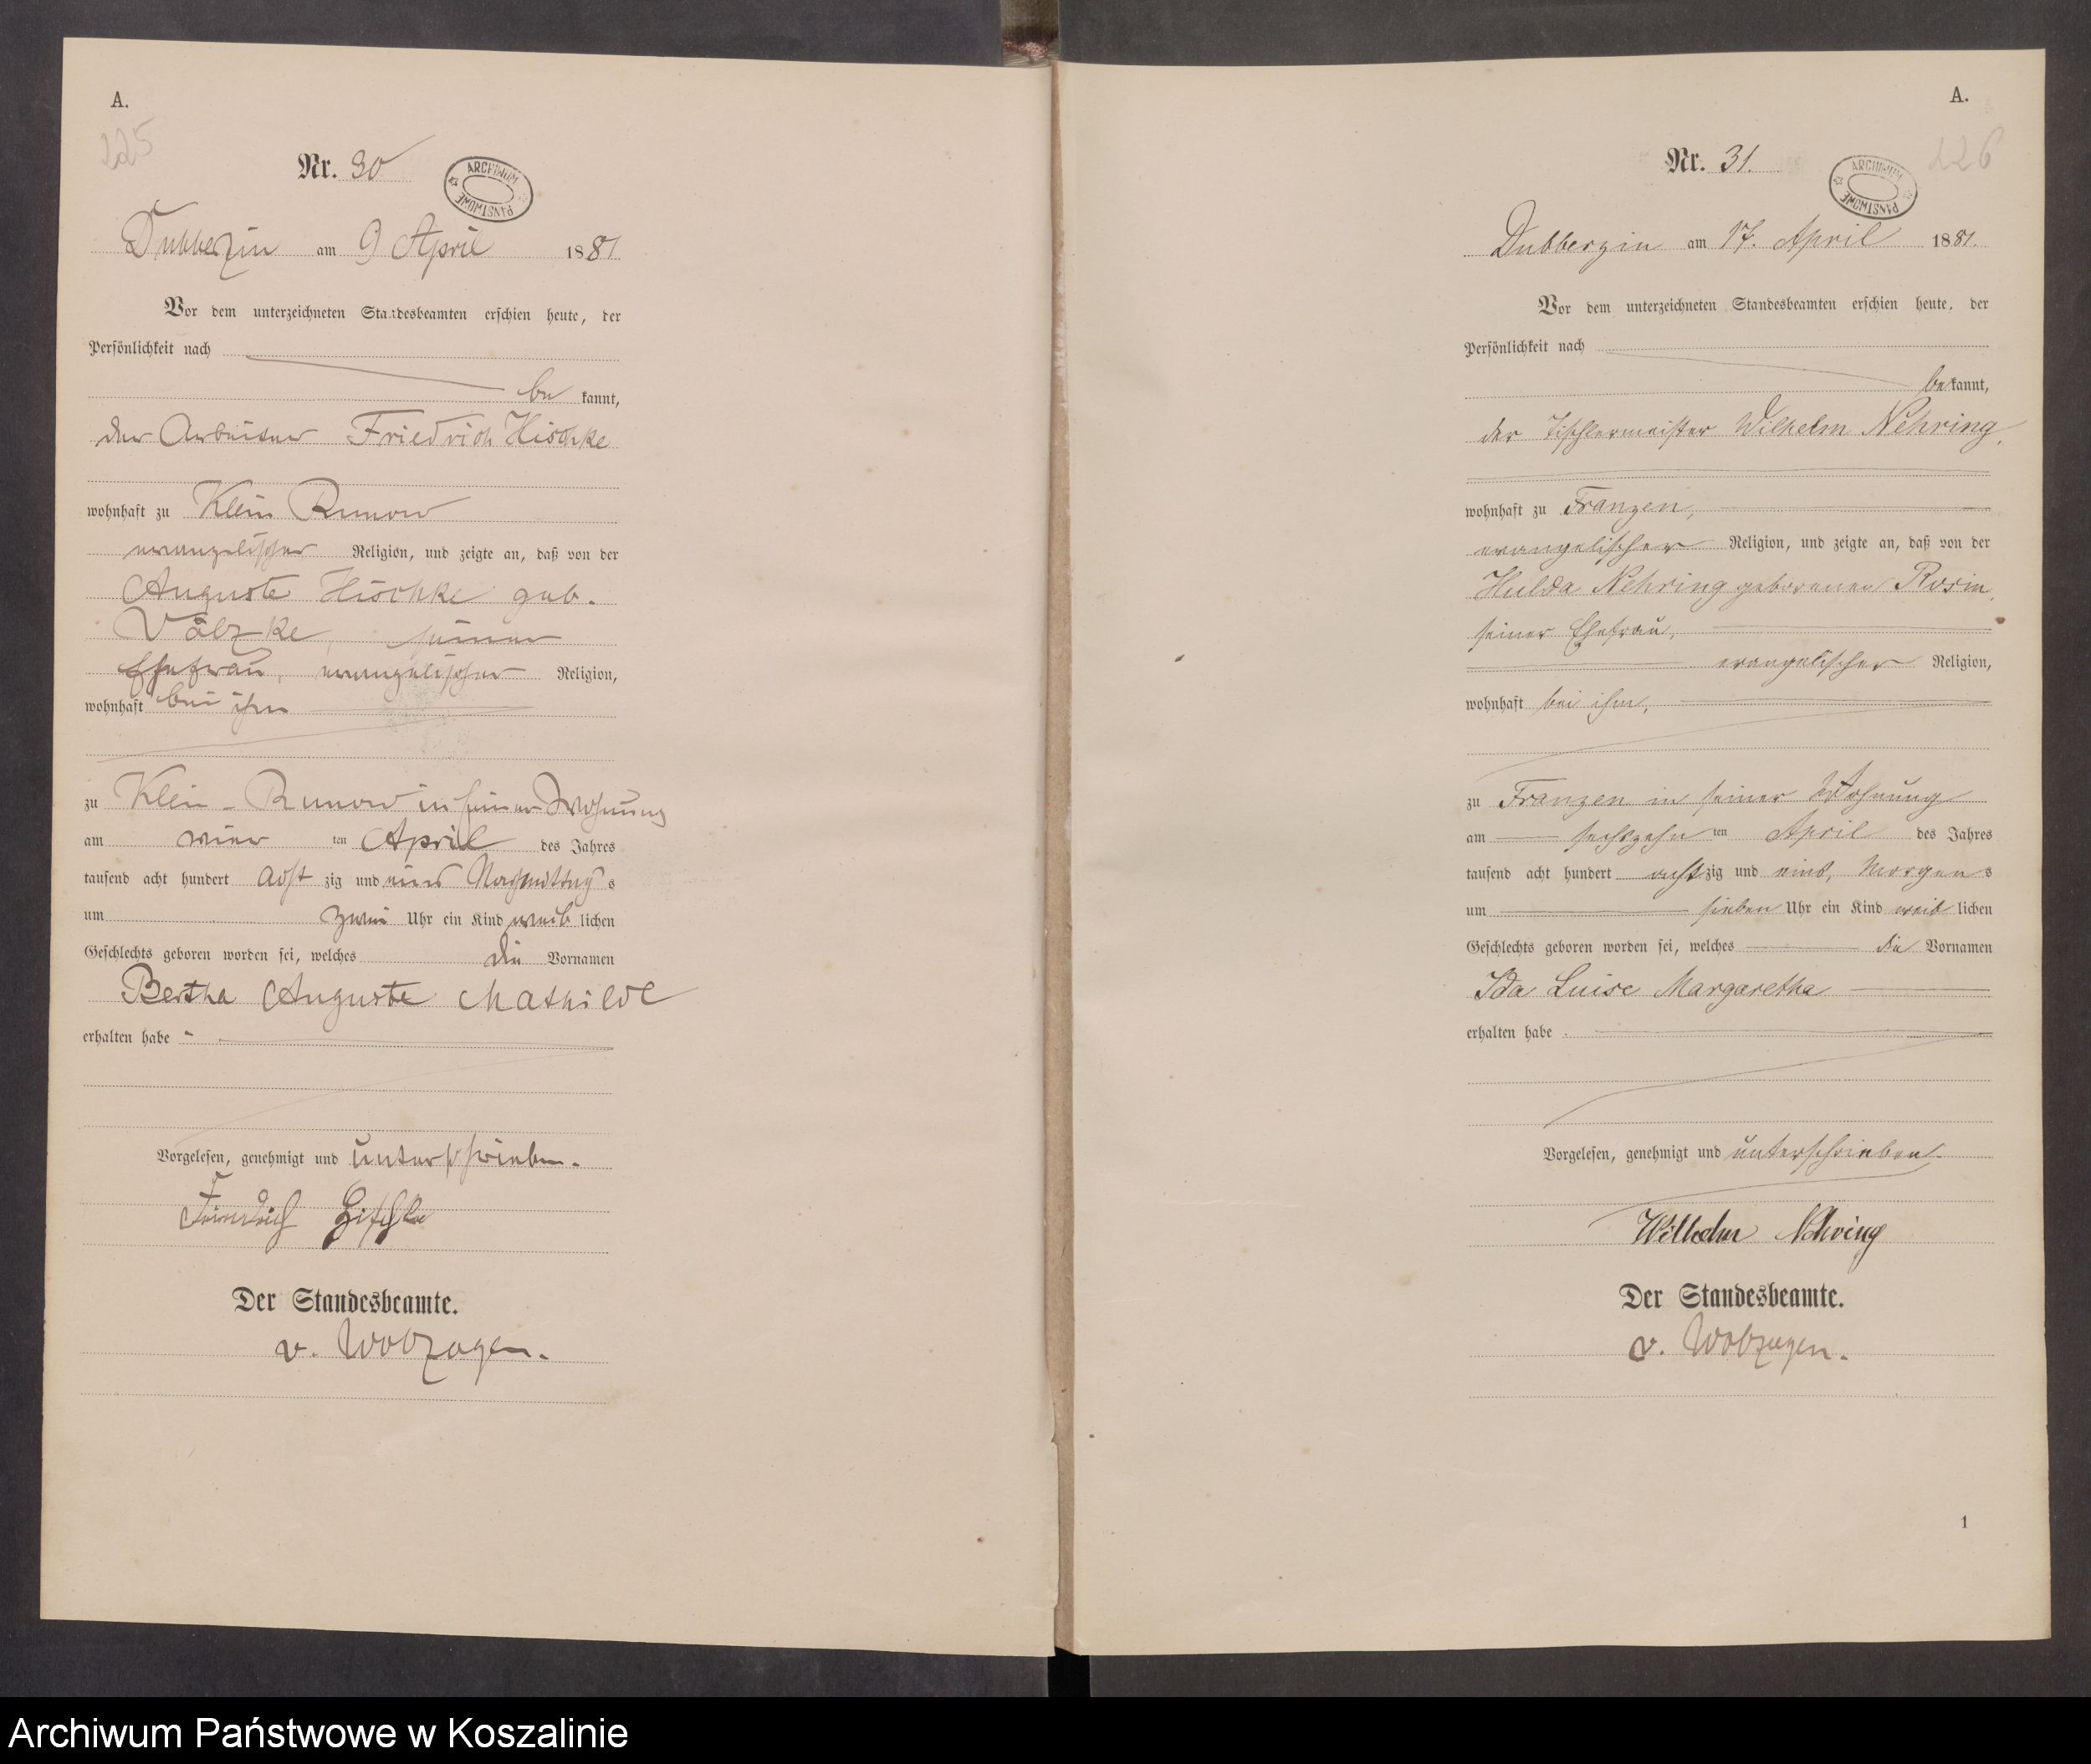 A.
225
Nr. 30
ARCHIWUM PAŃSTWOWE
Dubberzin am 9 April 1881
Vor dem unterzeichneten Standesbeamten erschien heute, der
Persönlichkeit nach
be kannt,
der Arbeiter Friedrich Hischke
wohnhaft zu Klein Runow
evangelischer Religion, und zeigte an, daß von der
Auguste Hischke geb.
Völzke, seiner
Ehefrau, evangelischer Religion,
wohnhaft bei ihm
zu Klein-Runow in seiner Wohnung
am vier ten April des Jahres
tausend acht hundert acht zig und eins Nachmittag s
um zwei Uhr ein Kind weib lichen
Geschlechts geboren worden sei, welches die Vornamen
Bertha Auguste Mathilde
erhalten habe
Vorgelesen, genehmigt und unterschrieben.
Friedrich Hischke
Der Standesbeamte.
v. Wobzogen.
A.
226
Nr. 31.
ARCHIWUM PAŃSTWOWE
Dubberzin am 17. April 1881.
Vor dem unterzeichneten Standesbeamten erschien heute, der
Persönlichkeit nach
be kannt,
der Tischlermeister Wilhelm Nehring,
wohnhaft zu Franzen,
evangelischer Religion, und zeigte an, daß von der
Hulda Nehring geborenen Rosin,
seiner Ehefrau,
evangelischer Religion,
wohnhaft bei ihm,
zu Franzen in seiner Wohnung
am sechszehn ten April des Jahres
tausend acht hundert acht zig und eins, Morgen s
um sieben Uhr ein Kind weib lichen
Geschlechts geboren worden sei, welches die Vornamen
Ida Luise Margaretha
erhalten habe.
Vorgelesen, genehmigt und unterschrieben.
Wilhelm Nehring
Der Standesbeamte.
v. Wobzogen.
1
Archiwum Państwowe w Koszalinie